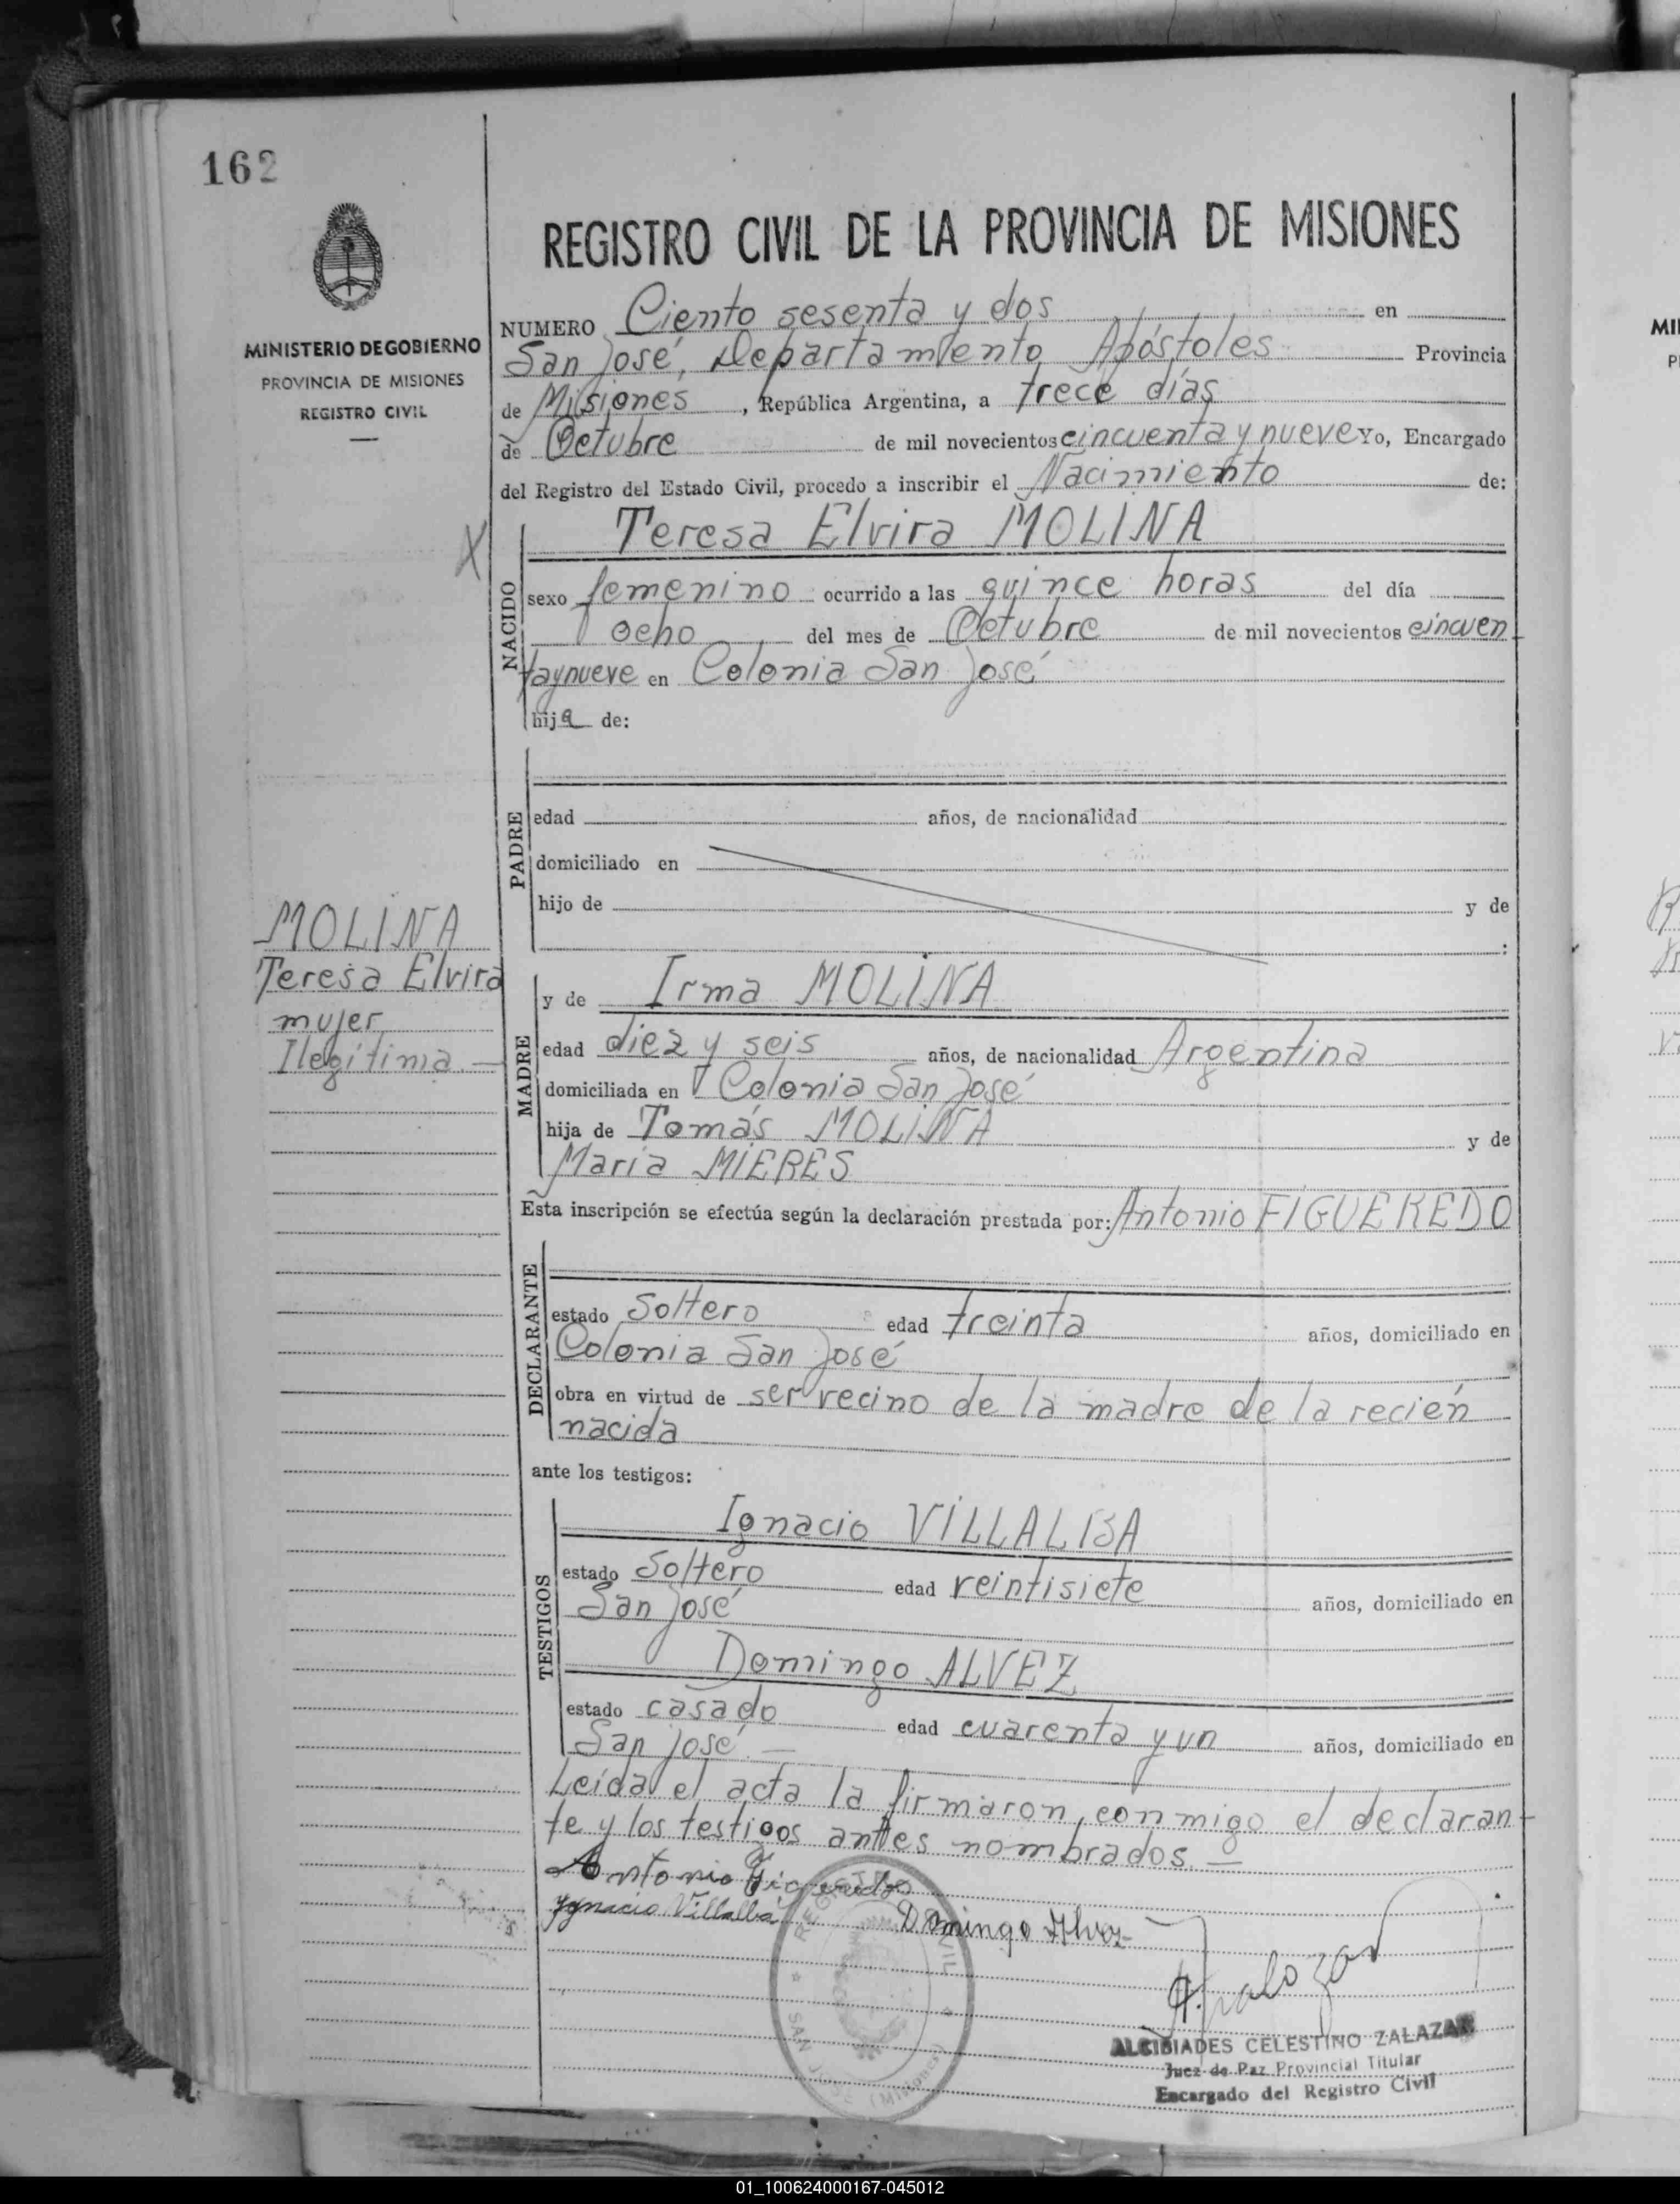 162
MINISTERIO DE GOBIERNO
PROVINCIA DE MISIONES
REGISTRO CIVIL
REGISTRO CIVIL DE LA PROVINCIA DE MISIONES
NUMERO Ciento sesenta y dos en
San José, Departamento Apóstoles Provincia
de Misiones, República Argentina, a trece días
de Octubre de mil novecientos cincuenta y nueve Yo, Encargado
del Registro del Estado Civil, procedo a inscribir el Nacimiento de:
X
NACIDO
Teresa Elvira MOLINA
sexo femenino ocurrido a las quince horas del día
ocho del mes de Octubre de mil novecientos cincuen
taynueve en Colonia San José
hija de:
PADRE
edad años, de nacionalidad
domiciliado en
hijo de y de
:
MOLINA
Teresa Elvira
mujer
Ilegítima.—
MADRE
y de Irma MOLINA
edad diez y seis años, de nacionalidad Argentina
domiciliada en Colonia San José
hija de Tomás MOLINA y de
María MIERES
Esta inscripción se efectúa según la declaración prestada por: Antonio FIGUEREDO
DECLARANTE
estado Soltero edad treinta años, domiciliado en
Colonia San José
obra en virtud de ser vecino de la madre de la recién
nacida
ante los testigos:
TESTIGOS
Ignacio VILLALBA
estado Soltero edad veintisiete años, domiciliado en
San José
Domingo ALVEZ
estado casado edad cuarenta y un años, domiciliado en
San José.—
Leída el acta la firmaron conmigo el declaran-
te y los testigos antes nombrados.—
Antonio Figueredo
Ygnacio Villalba Domingo Alvez
REGISTRO CIVIL
SAN JOSE (Misiones)
A. Zalazar
ALCIBIADES CELESTINO ZALAZAR
Juez de Paz Provincial Titular
Encargado del Registro Civil
01_100624000167-045012